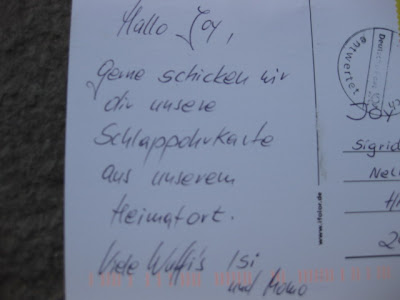 Hallo Joy,
Gerne schicken wir
dir unsere
Schlappohrkarte
aus unserem
Heimatort.
Viele Wuffi's Isi
und Momo
www.ifolor.de
entwertet
Joy
Sigrid